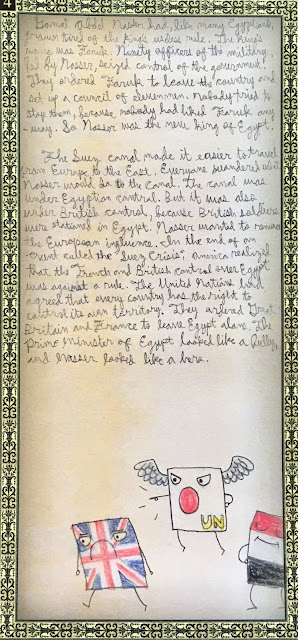 4
Gamal Abdel Nasser had, like many Egyptians,
grown tired of the king's useless rule. The king's
name was Faruk. Ninety officers of the military,
led by Nasser, seized control of the government!
They ordered Faruk to leave the country and
set up a council of elevenmen. Nobody tried to
stop them, because nobody had liked Faruk any
-way. So Nasser was the new king of Egypt.
The Suez canal made it easier to travel
from Europe to the East. Everyone wandered what
Nasser would do to the canal. The canal was
under Egyptian control. But it was also
under British control, because British soldiers
were stationed in Egypt. Nasser wanted to remove
the European influence. In the end of an
event called the "Suez Crisis", America realized
that the French and British control over Egypt
was against a rule. The United Nations had
agreed that every country has the right to
control its own territory. They ordered Great
Britain and France to leave Egypt alone. The
Prime Minister of Egypt looked like a bully,
and Nasser looked like a hero.
UN